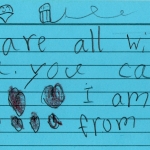 are all wi
you ca
I am
from